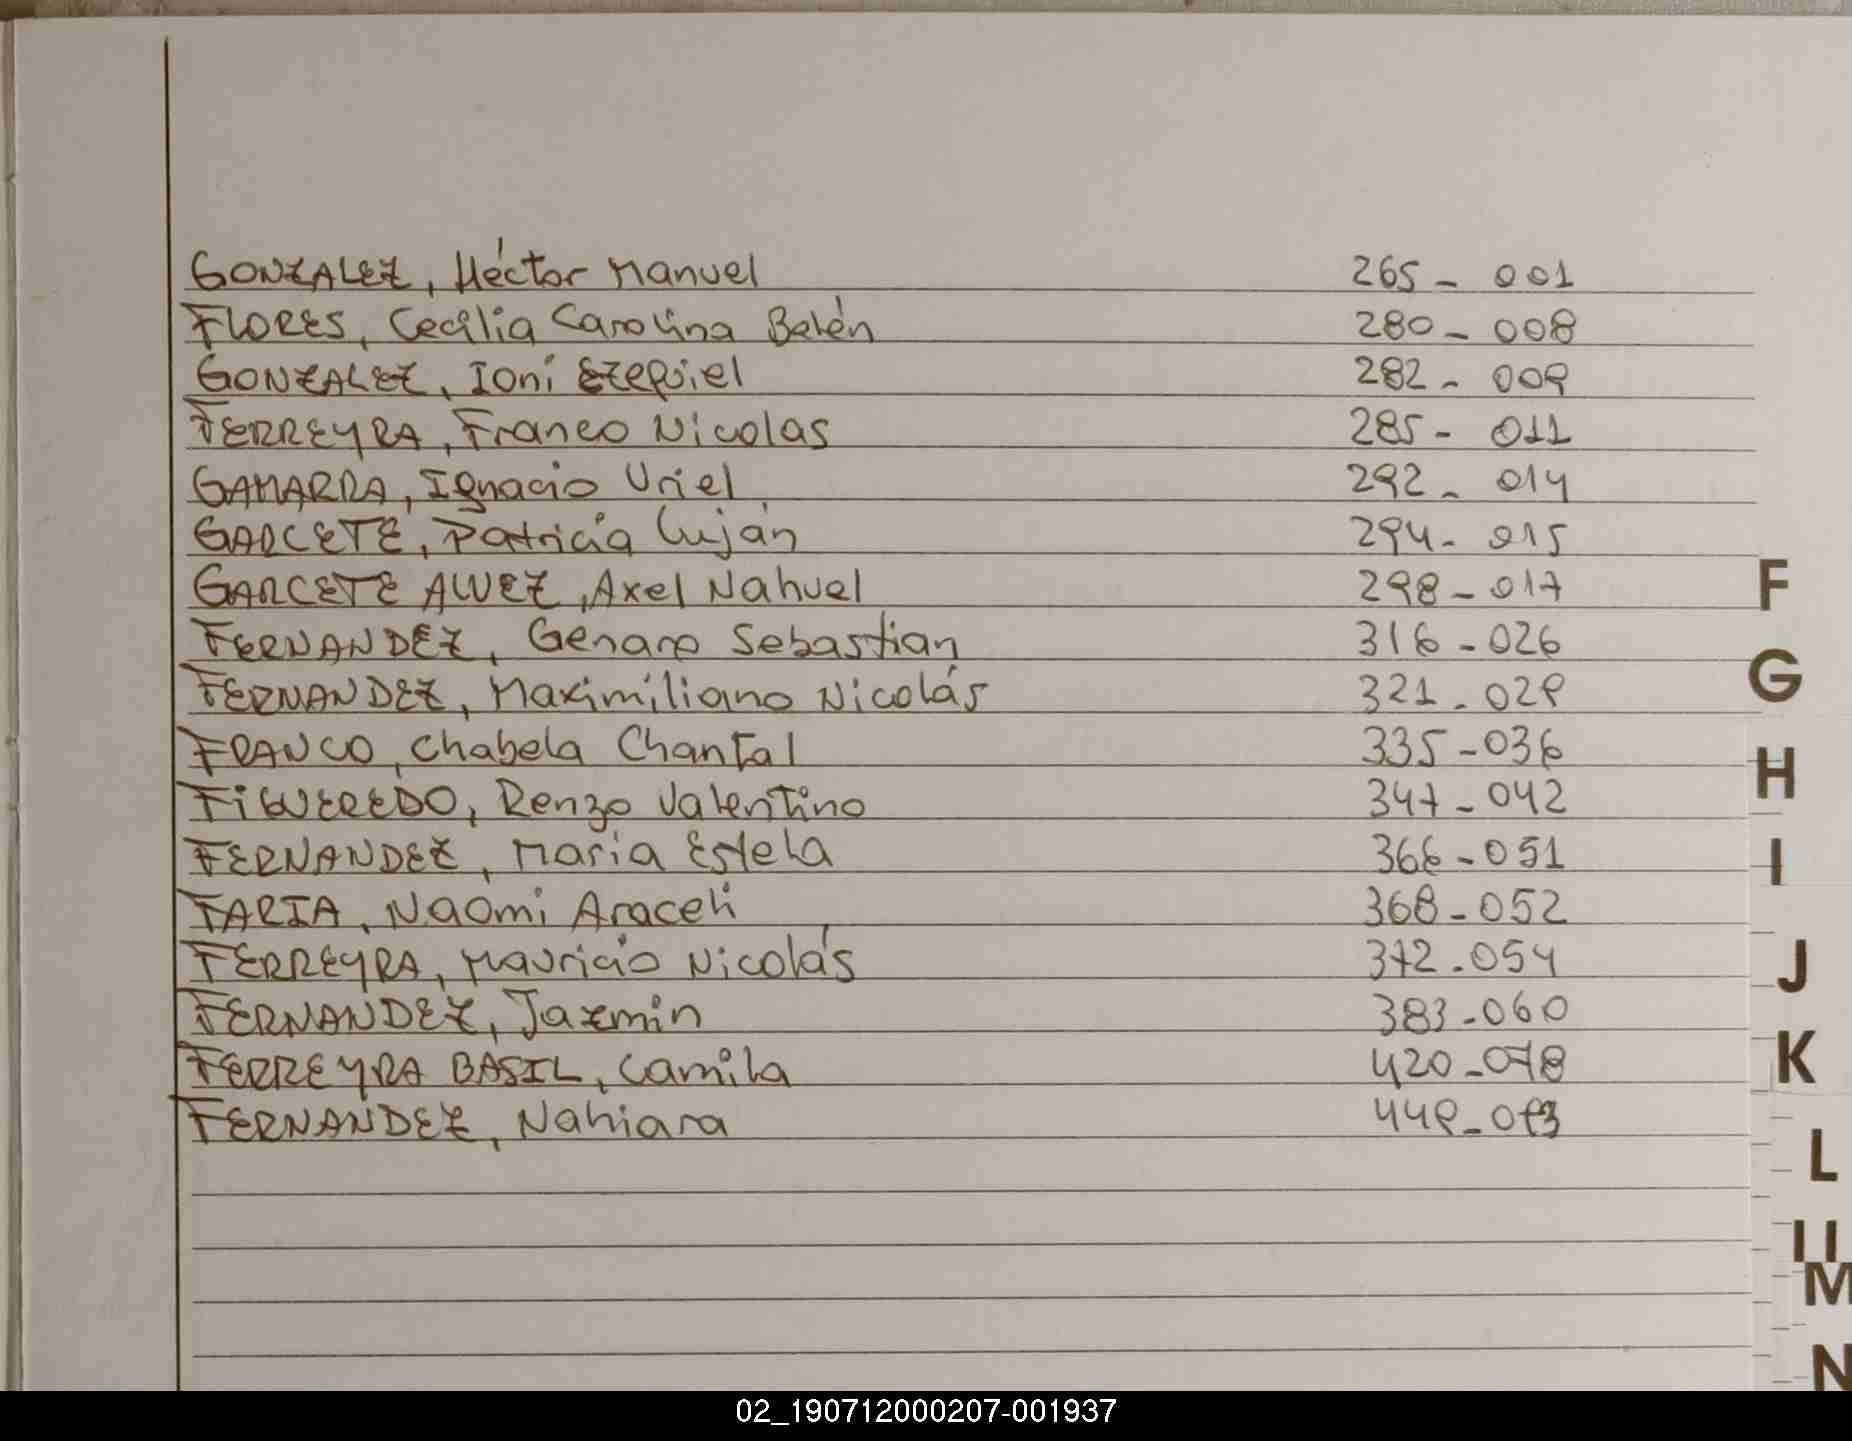 GONZALEZ, Héctor Manuel 265 - 001
FLORES, Cecilia Carolina Belén 280 - 008
GONZALEZ, Ioni Ezequiel 282 - 009
FERREYRA, Franco Nicolas 285 - 011
GAMARRA, Ignacio Uriel 292 - 014
GARCETE, Patricia Luján 294 - 015
GARCETE ALVEZ, Axel Nahuel 298 - 017
F
FERNANDEZ, Genaro Sebastian 316 - 026
G
FERNANDEZ, Maximiliano Nicolás 321 - 029
FRANCO, Chabela Chantal 335 - 036
H
FIGUEREDO, Renzo Valentino 347 - 042
FERNANDEZ, Maria Estela 366 - 051
I
FARIA, Naomi Araceli 368 - 052
FERREYRA, Mauricio Nicolás 372 - 054
J
FERNANDEZ, Jazmin 383 - 060
FERREYRA BASIL, Camila 420 - 078
K
FERNANDEZ, Nahiara 449 - 093
L
Ll
M
N
02_190712000207-001937